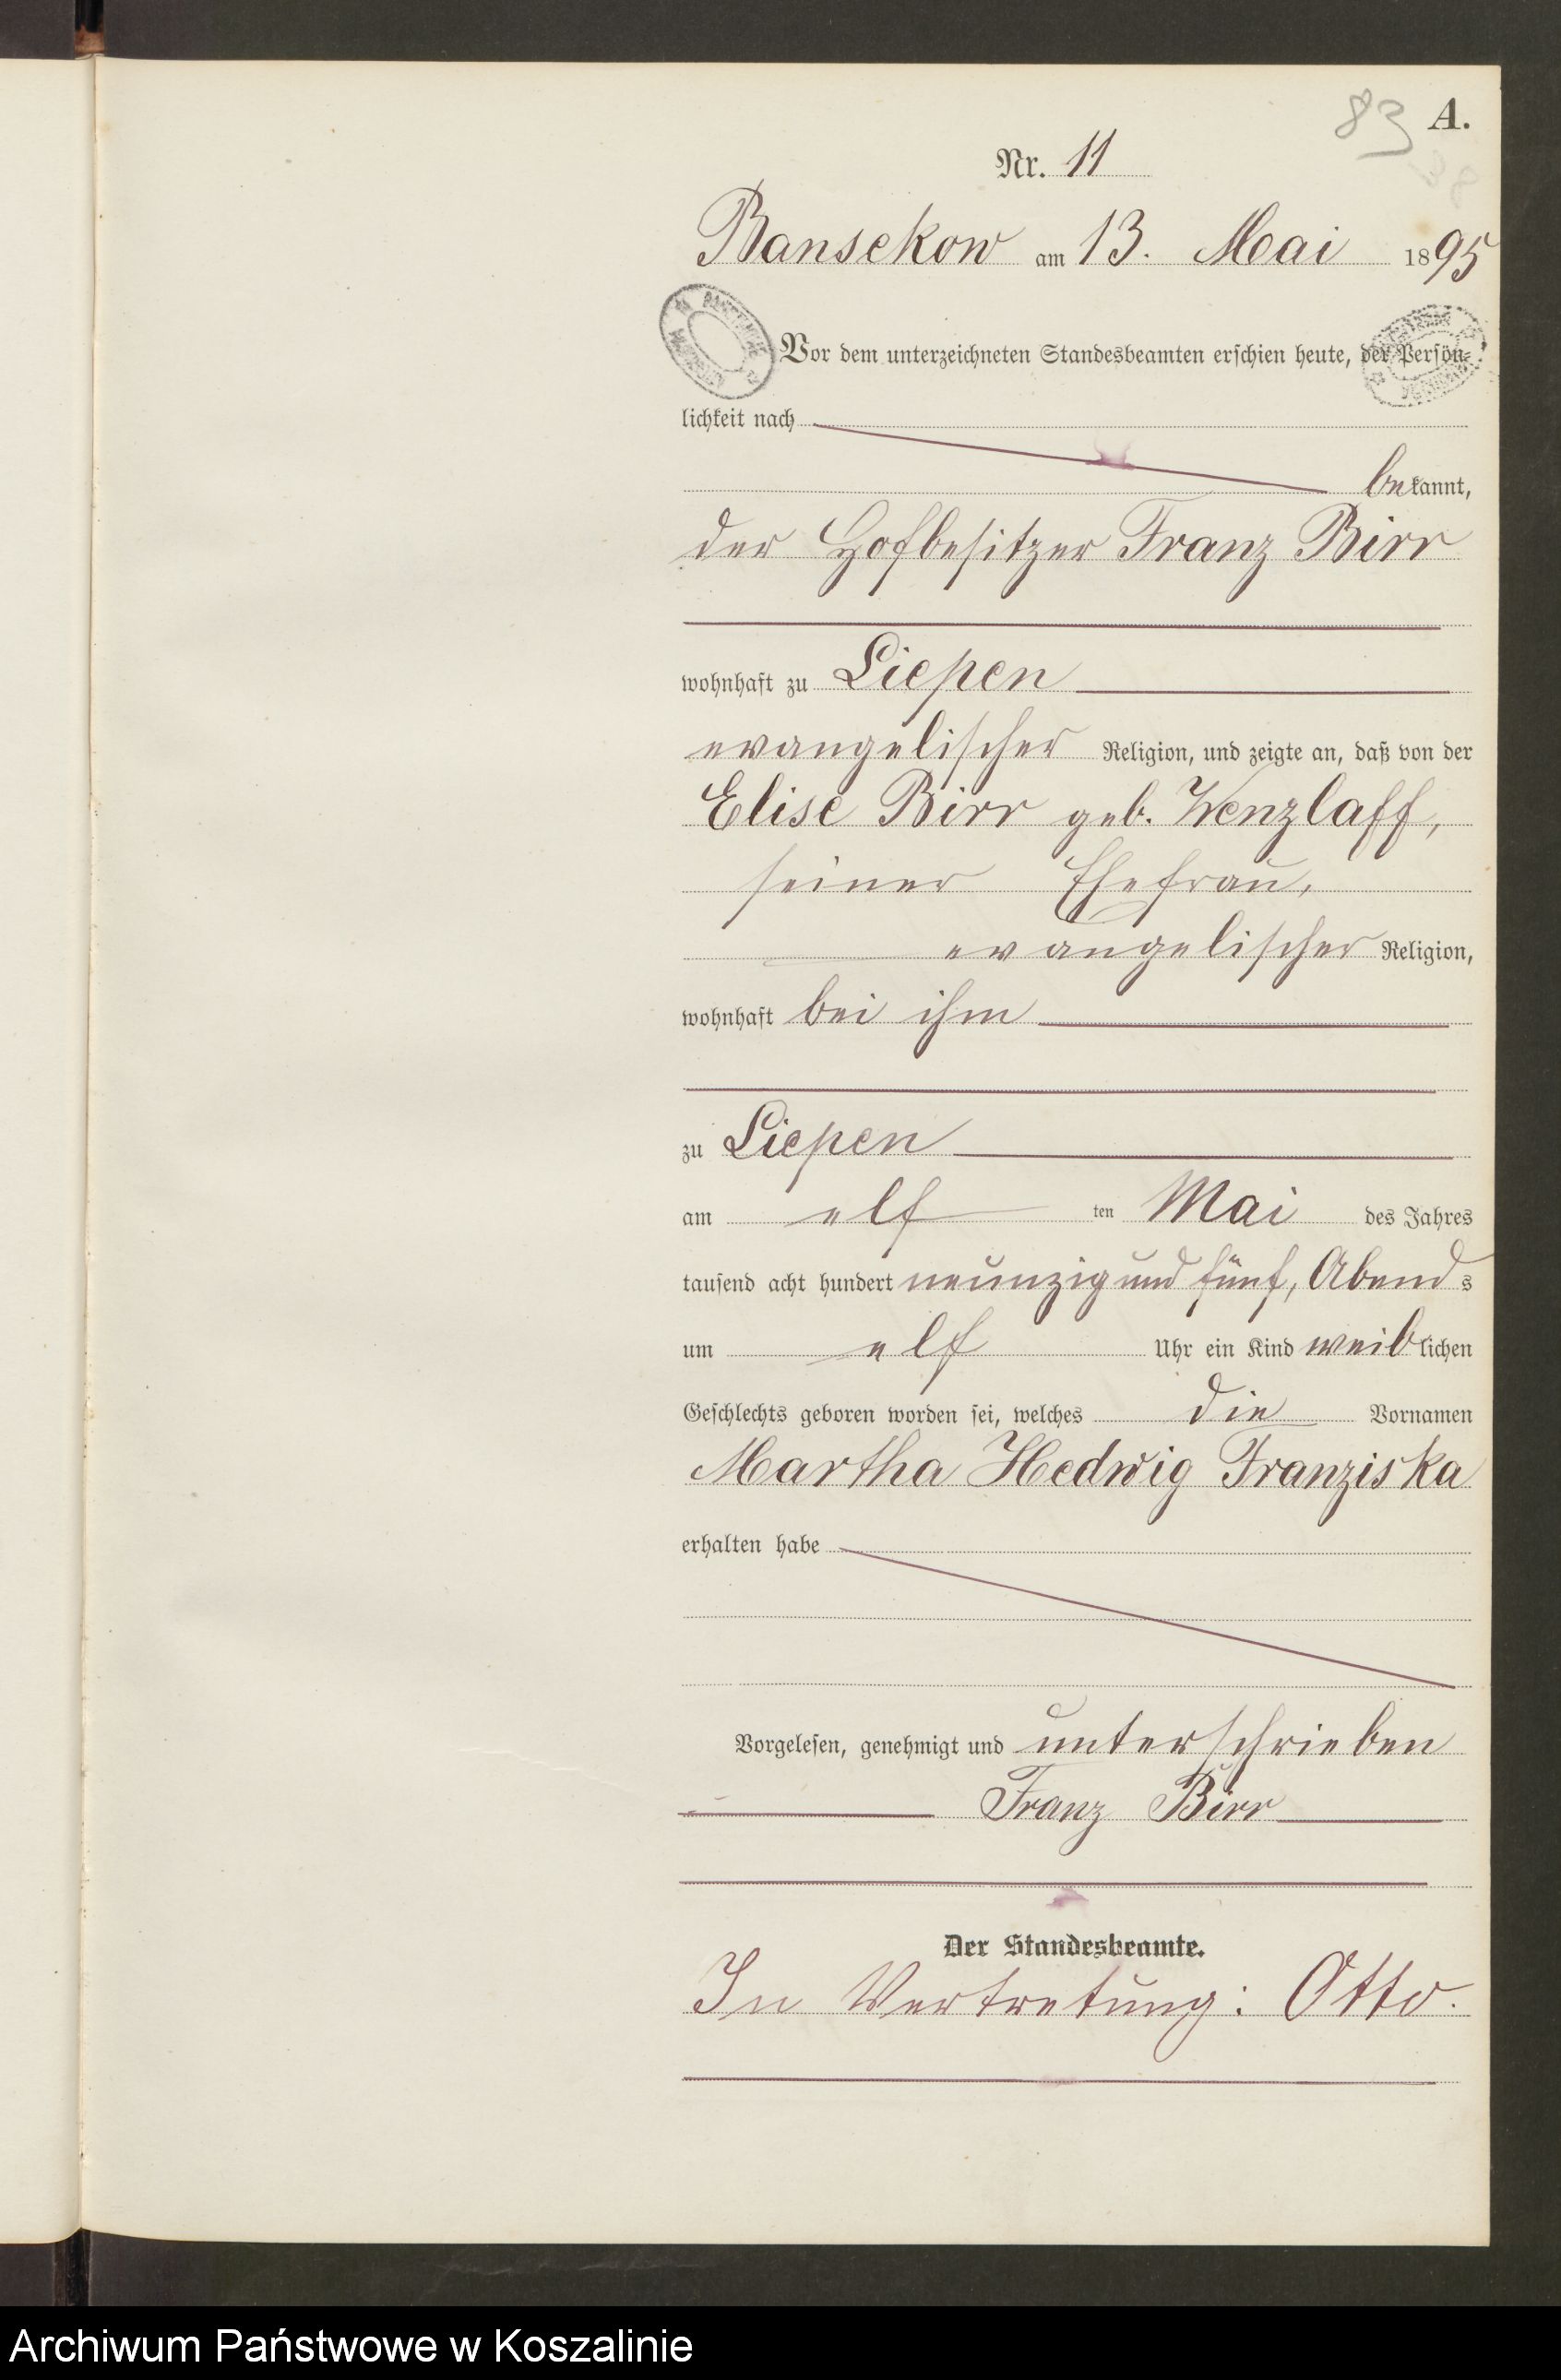 83 A.
Nr. 11
Bansekow am 13. Mai 1895
Vor dem unterzeichneten Standesbeamten erschien heute, der Persön-
lichkeit nach
bekannt,
der Hofbesitzer Franz Birr
wohnhaft zu Liepen
evangelischer Religion, und zeigte an, daß von der
Elise Birr geb. Wenzlaff,
seiner Ehefrau,
evangelischer Religion,
wohnhaft bei ihm
zu Liepen
am elf ten Mai des Jahres
tausend acht hundert neunzig und fünf, Abends
um elf Uhr ein Kind weiblichen
Geschlechts geboren worden sei, welches die Vornamen
Martha Hedwig Franziska
erhalten habe
Vorgelesen, genehmigt und unterschrieben
Franz Birr
Der Standesbeamte.
In Vertretung: Otto.
Archiwum Państwowe w Koszalinie